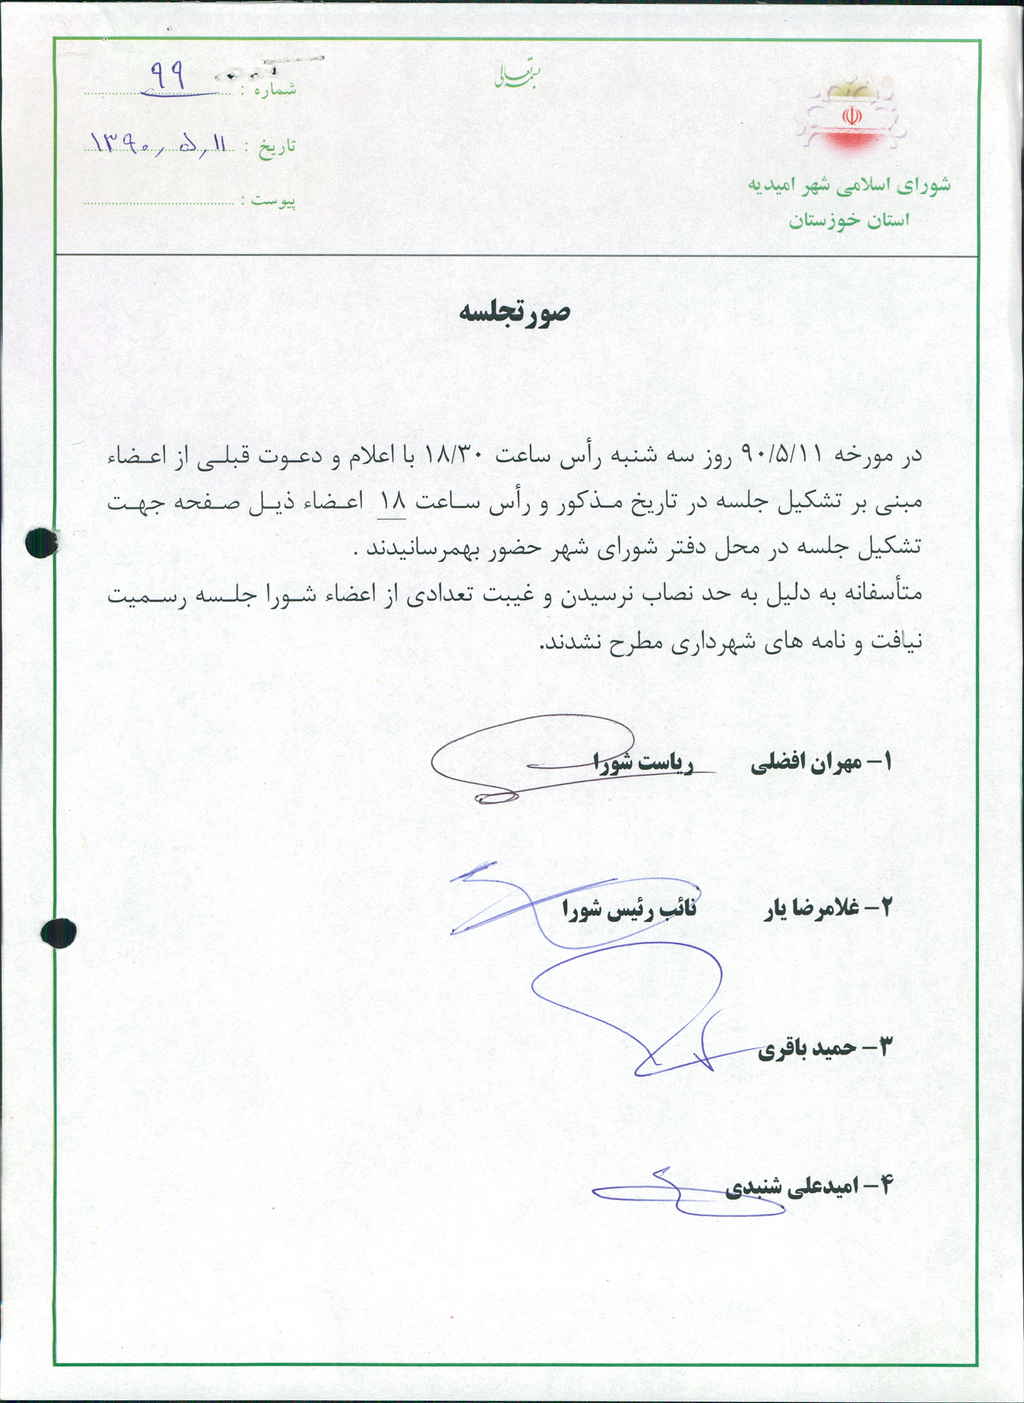 بسمه تعالی
شورای اسلامی شهر امیدیه
استان خوزستان
شماره : ۹۹
تاریخ : ۱۳۹۰٫۵٫۱۱
پیوست :
صورتجلسه
در مورخه ۹۰/۵/۱۱ روز سه شنبه رأس ساعت ۱۸/۳۰ با اعلام و دعوت قبلی از اعضاء
مبنی بر تشکیل جلسه در تاریخ مذکور و رأس ساعت ۱۸ اعضاء ذیل صفحه جهت
تشکیل جلسه در محل دفتر شورای شهر حضور بهمرسانیدند .
متأسفانه به دلیل به حد نصاب نرسیدن و غیبت تعدادی از اعضاء شورا جلسه رسمیت
نیافت و نامه های شهرداری مطرح نشدند.
۱- مهران افضلی ریاست شورا
۲- غلامرضا یار نائب رئیس شورا
۳- حمید باقری
۴- امیدعلی شنبدی